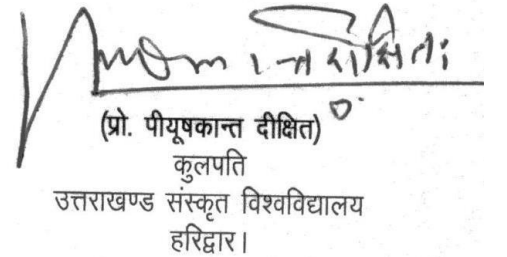 (प्रो. पीयूषकान्त दीक्षित)
कुलपति
उत्तराखण्ड संस्कृत विश्वविद्यालय
हरिद्वार।